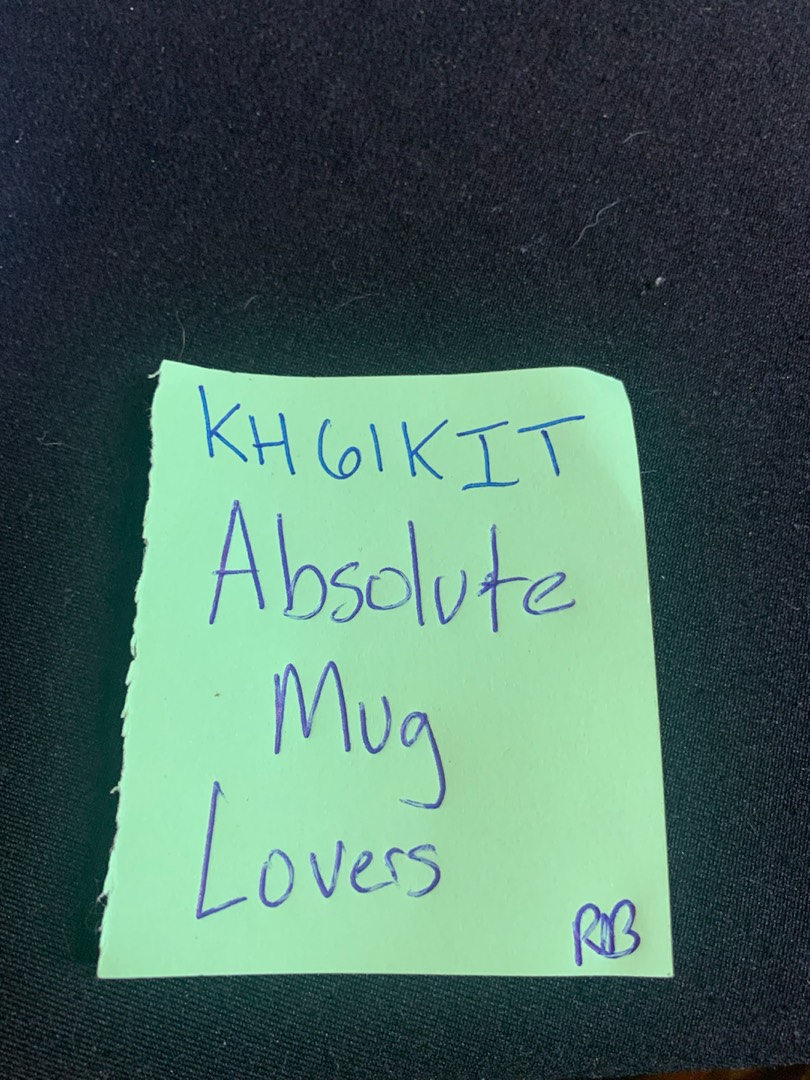 KH61KIT
Absolute
Mug
Lovers
RB